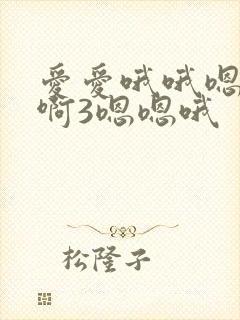 爱爱哦哦嗯
啊3嗯嗯哦
松隆子